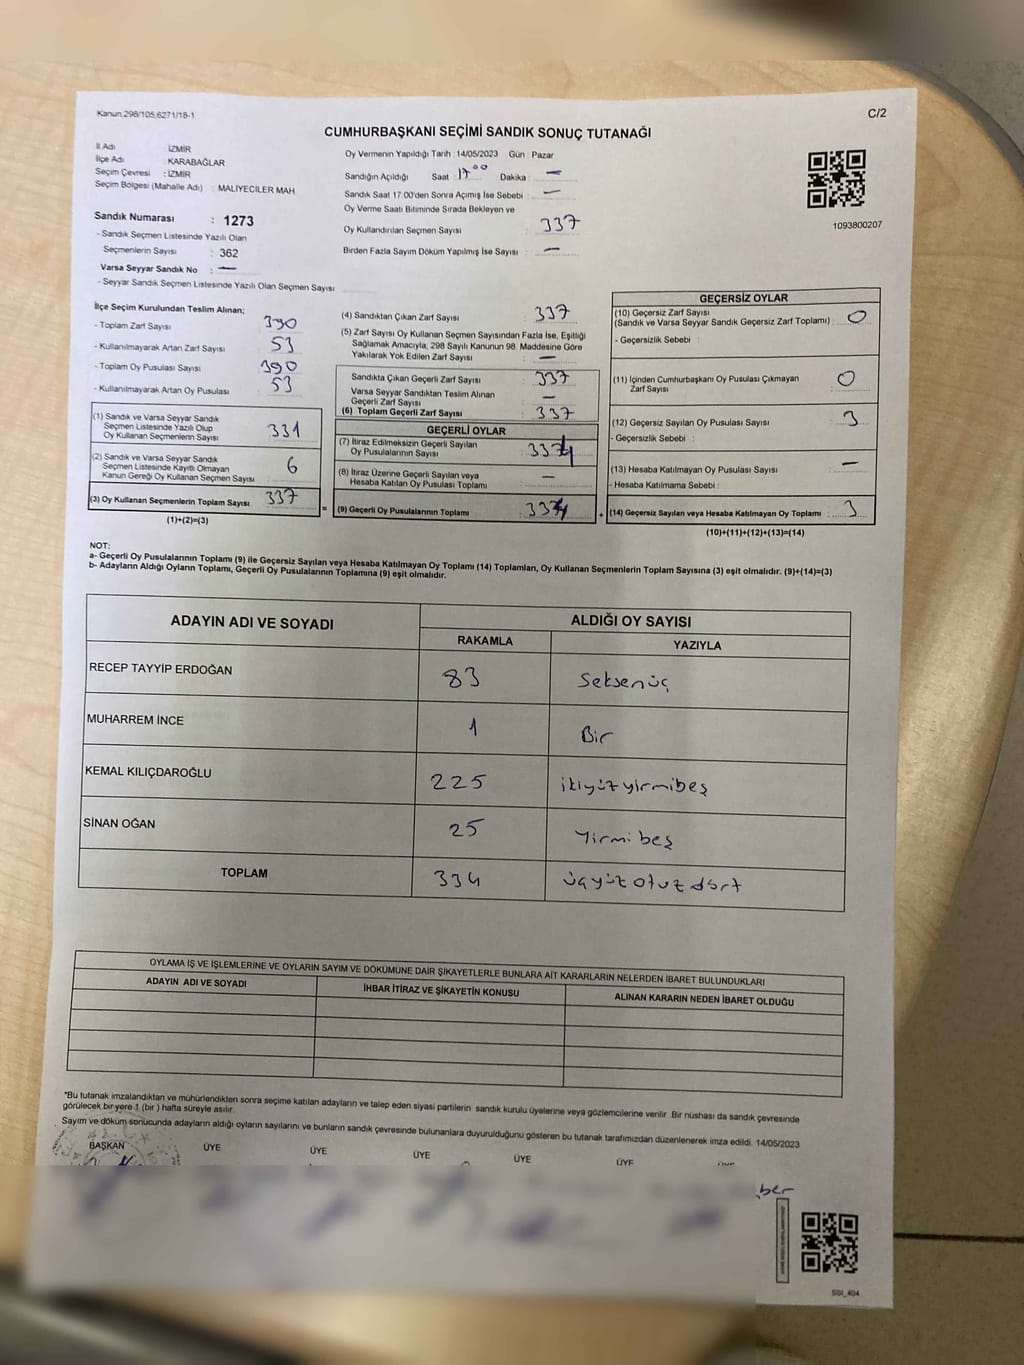 Kanun,298/105,6271/18-1
C/2
CUMHURBAŞKANI SEÇİMİ SANDIK SONUÇ TUTANAĞI
İl Adı : İZMİR
İlçe Adı : KARABAĞLAR
Seçim Çevresi : İZMİR
Seçim Bölgesi (Mahalle Adı) : MALİYECİLER MAH
Sandık Numarası : 1273
- Sandık Seçmen Listesinde Yazılı Olan
Seçmenlerin Sayısı : 362
Varsa Seyyar Sandık No : —
- Seyyar Sandık Seçmen Listesinde Yazılı Olan Seçmen Sayısı
Oy Vermenin Yapıldığı Tarih : 14/05/2023 Gün : Pazar
Sandığın Açıldığı Saat 17 00 Dakika : —
Sandık Saat 17:00'den Sonra Açımış İse Sebebi : —
Oy Verme Saati Bitiminde Sırada Bekleyen ve
Oy Kullandırılan Seçmen Sayısı : 337
Birden Fazla Sayım Döküm Yapılmış İse Sayısı : —
1093800207
İlçe Seçim Kurulundan Teslim Alınan;
- Toplam Zarf Sayısı 390
- Kullanılmayarak Artan Zarf Sayısı 53
- Toplam Oy Pusulası Sayısı 390
- Kullanılmayarak Artan Oy Pusulası 53
(1) Sandık ve Varsa Seyyar Sandık
Seçmen Listesinde Yazılı Olup
Oy Kullanan Seçmenlerin Sayısı 331
(2) Sandık ve Varsa Seyyar Sandık
Seçmen Listesinde Kayıtlı Olmayan
Kanun Gereği Oy Kullanan Seçmen Sayısı 6
(3) Oy Kullanan Seçmenlerin Toplam Sayısı 337
(1)+(2)=(3)
(4) Sandıktan Çıkan Zarf Sayısı : 337
(5) Zarf Sayısı Oy Kullanan Seçmen Sayısından Fazla İse, Eşitliği
Sağlamak Amacıyla, 298 Sayılı Kanunun 98. Maddesine Göre
Yakılarak Yok Edilen Zarf Sayısı : —
Sandıkta Çıkan Geçerli Zarf Sayısı : 337
Varsa Seyyar Sandıktan Teslim Alınan
Geçerli Zarf Sayısı : —
(6) Toplam Geçerli Zarf Sayısı : 337
GEÇERLİ OYLAR
(7) İtiraz Edilmeksizin Geçerli Sayılan
Oy Pusulalarının Sayısı : 334
(8) İtiraz Üzerine Geçerli Sayılan veya
Hesaba Katılan Oy Pusulası Toplamı : —
= (9) Geçerli Oy Pusulalarının Toplamı : 334 +
GEÇERSİZ OYLAR
(10) Geçersiz Zarf Sayısı
(Sandık ve Varsa Seyyar Sandık Geçersiz Zarf Toplamı) : 0
- Geçersizlik Sebebi :
(11) İçinden Cumhurbaşkanı Oy Pusulası Çıkmayan
Zarf Sayısı 0
(12) Geçersiz Sayılan Oy Pusulası Sayısı : 3
- Geçersizlik Sebebi :
(13) Hesaba Katılmayan Oy Pusulası Sayısı : —
- Hesaba Katılmama Sebebi :
(14) Geçersiz Sayılan veya Hesaba Katılmayan Oy Toplamı : 3
(10)+(11)+(12)+(13)=(14)
NOT:
a- Geçerli Oy Pusulalarının Toplamı (9) ile Geçersiz Sayılan veya Hesaba Katılmayan Oy Toplamı (14) Toplamları, Oy Kullanan Seçmenlerin Toplam Sayısına (3) eşit olmalıdır. (9)+(14)=(3)
b- Adayların Aldığı Oyların Toplamı, Geçerli Oy Pusulalarının Toplamına (9) eşit olmalıdır.
ADAYIN ADI VE SOYADI
ALDIĞI OY SAYISI
RAKAMLA YAZIYLA
RECEP TAYYİP ERDOĞAN 83 Seksenüç
MUHARREM İNCE 1 Bir
KEMAL KILIÇDAROĞLU 225 ikiyüzyirmibeş
SİNAN OĞAN 25 Yirmi beş
TOPLAM 334 üçyüz otuz dört
OYLAMA İŞ VE İŞLEMLERİNE VE OYLARIN SAYIM VE DÖKÜMÜNE DAİR ŞİKAYETLERLE BUNLARA AİT KARARLARIN NELERDEN İBARET BULUNDUKLARI
ADAYIN ADI VE SOYADI
İHBAR İTİRAZ VE ŞİKAYETİN KONUSU
ALINAN KARARIN NEDEN İBARET OLDUĞU
*Bu tutanak imzalandıktan ve mühürlendikten sonra seçime katılan adayların ve talep eden siyasi partilerin sandık kurulu üyelerine veya gözlemcilerine verilir .Bir nüshası da sandık çevresinde
görülecek bir yere 1 (bir ) hafta süreyle asılır.
Sayım ve döküm sonucunda adayların aldığı oyların sayılarını ve bunların sandık çevresinde bulunanlara duyurulduğunu gösteren bu tutanak tarafımızdan düzenlenerek imza edildi. 14/05/2023
BAŞKAN ÜYE ÜYE ÜYE ÜYE ÜYE